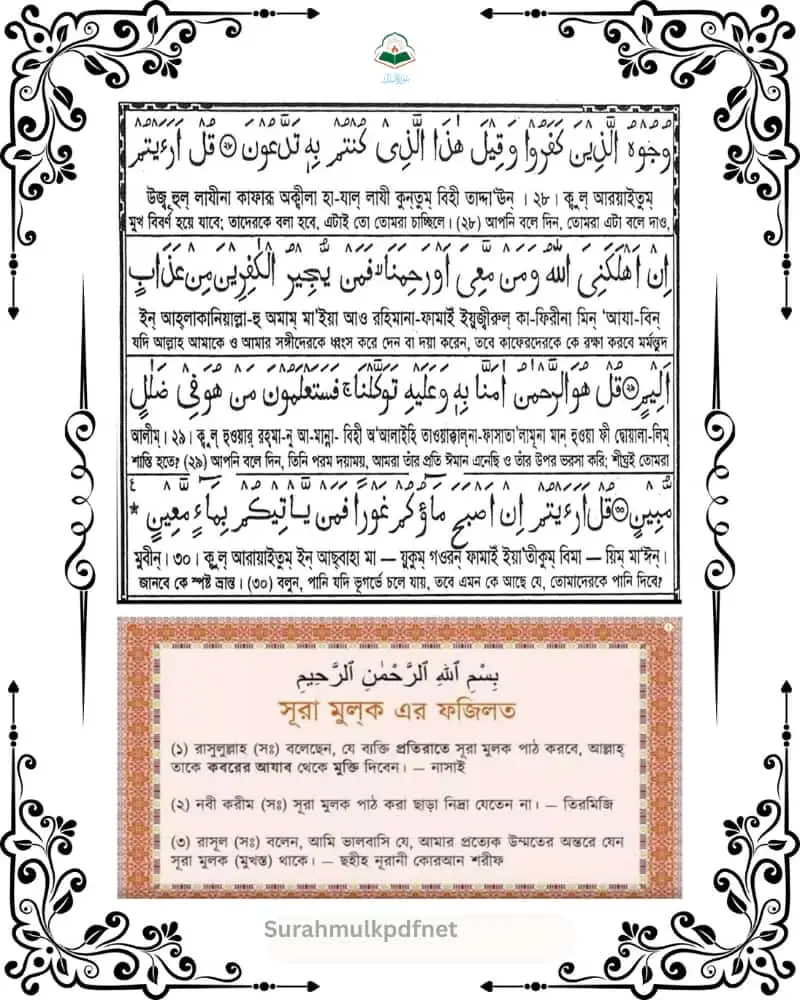 وُجُوهُ الَّذِينَ كَفَرُوا وَقِيلَ هَٰذَا الَّذِي كُنْتُمْ بِهِ تَدَّعُونَ ۝٢٧ قُلْ أَرَءَيْتُمْ
উজূ হুল্ লাযীনা কাফারূ অক্বীলা হা-যাল্ লাযী কুন্‌তুম্ বিহী তাদ্দা'ঊন্ । ২৮। ক্বুল্ আরয়াইতুম্
মুখ বিবর্ণ হয়ে যাবে; তাদেরকে বলা হবে, এটাই তো তোমরা চাচ্ছিলে। (২৮) আপনি বলে দিন, তোমরা এটা বলে দাও,
إِنْ أَهْلَكَنِيَ اللَّهُ وَمَنْ مَعِيَ أَوْ رَحِمَنَا فَمَنْ يُجِيرُ الْكَافِرِينَ مِنْ عَذَابٍ
ইন্ আহ্‌লাকানিয়াল্লা-হু অমাম্ মা'ইয়া আও রহিমানা-ফামাইঁ ইয়ুজ্বীরুল্ কা-ফিরীনা মিন্ 'আযা-বিন্
যদি আল্লাহ আমাকে ও আমার সঙ্গীদেরকে ধ্বংস করে দেন বা দয়া করেন, তবে কাফেরদেরকে কে রক্ষা করবে মর্মন্তুদ
أَلِيمٍ ۝٢٨ قُلْ هُوَ الرَّحْمَٰنُ آمَنَّا بِهِ وَعَلَيْهِ تَوَكَّلْنَا ۚ فَسَتَعْلَمُونَ مَنْ هُوَ فِي ضَلَالٍ
আলীম্। ২৯। ক্বুল্ হুওয়ার্ রহ্‌মা-নু আ-মান্না- বিহী অ'আলাইহি তাওয়াক্কাল্‌না-ফাসাতা'লামূনা মান্ হুওয়া ফী দ্বোয়ালা-লিম্
শাস্তি হতে? (২৯) আপনি বলে দিন, তিনি পরম দয়াময়, আমরা তাঁর প্রতি ঈমান এনেছি ও তাঁর উপর ভরসা করি; শীঘ্রই তোমরা
مُبِينٍ ۝٢٩ قُلْ أَرَءَيْتُمْ إِنْ أَصْبَحَ مَاؤُكُمْ غَوْرًا فَمَنْ يَأْتِيكُمْ بِمَاءٍ مَعِينٍ *
মুবীন্। ৩০। ক্বুল্ আরায়াইতুম্ ইন্ আছ্‌বাহা মা — য়ুকুম্ গওরন্ ফামাইঁ ইয়া'তীকুম্ বিমা — য়িম্ মা'ঈন্।
জানবে কে স্পষ্ট ভ্রান্ত। (৩০) বলুন, পানি যদি ভূগর্ভে চলে যায়, তবে এমন কে আছে যে, তোমাদেরকে পানি দিবে?
بِسْمِ ٱللَّهِ ٱلرَّحْمَٰنِ ٱلرَّحِيمِ
সূরা মুল্‌ক এর ফজিলত
(১) রাসুলুল্লাহ (সঃ) বলেছেন, যে ব্যক্তি প্রতিরাতে সূরা মুলক পাঠ করবে, আল্লাহ্
তাকে কবরের আযাব থেকে মুক্তি দিবেন। — নাসাই
(২) নবী করীম (সঃ) সূরা মুলক পাঠ করা ছাড়া নিদ্রা যেতেন না। — তিরমিজি
(৩) রাসূল (সঃ) বলেন, আমি ভালবাসি যে, আমার প্রত্যেক উম্মতের অন্তরে যেন
সূরা মুলক (মুখস্ত) থাকে। — ছহীহ নূরানী কোরআন শরীফ
Surahmulkpdfnet